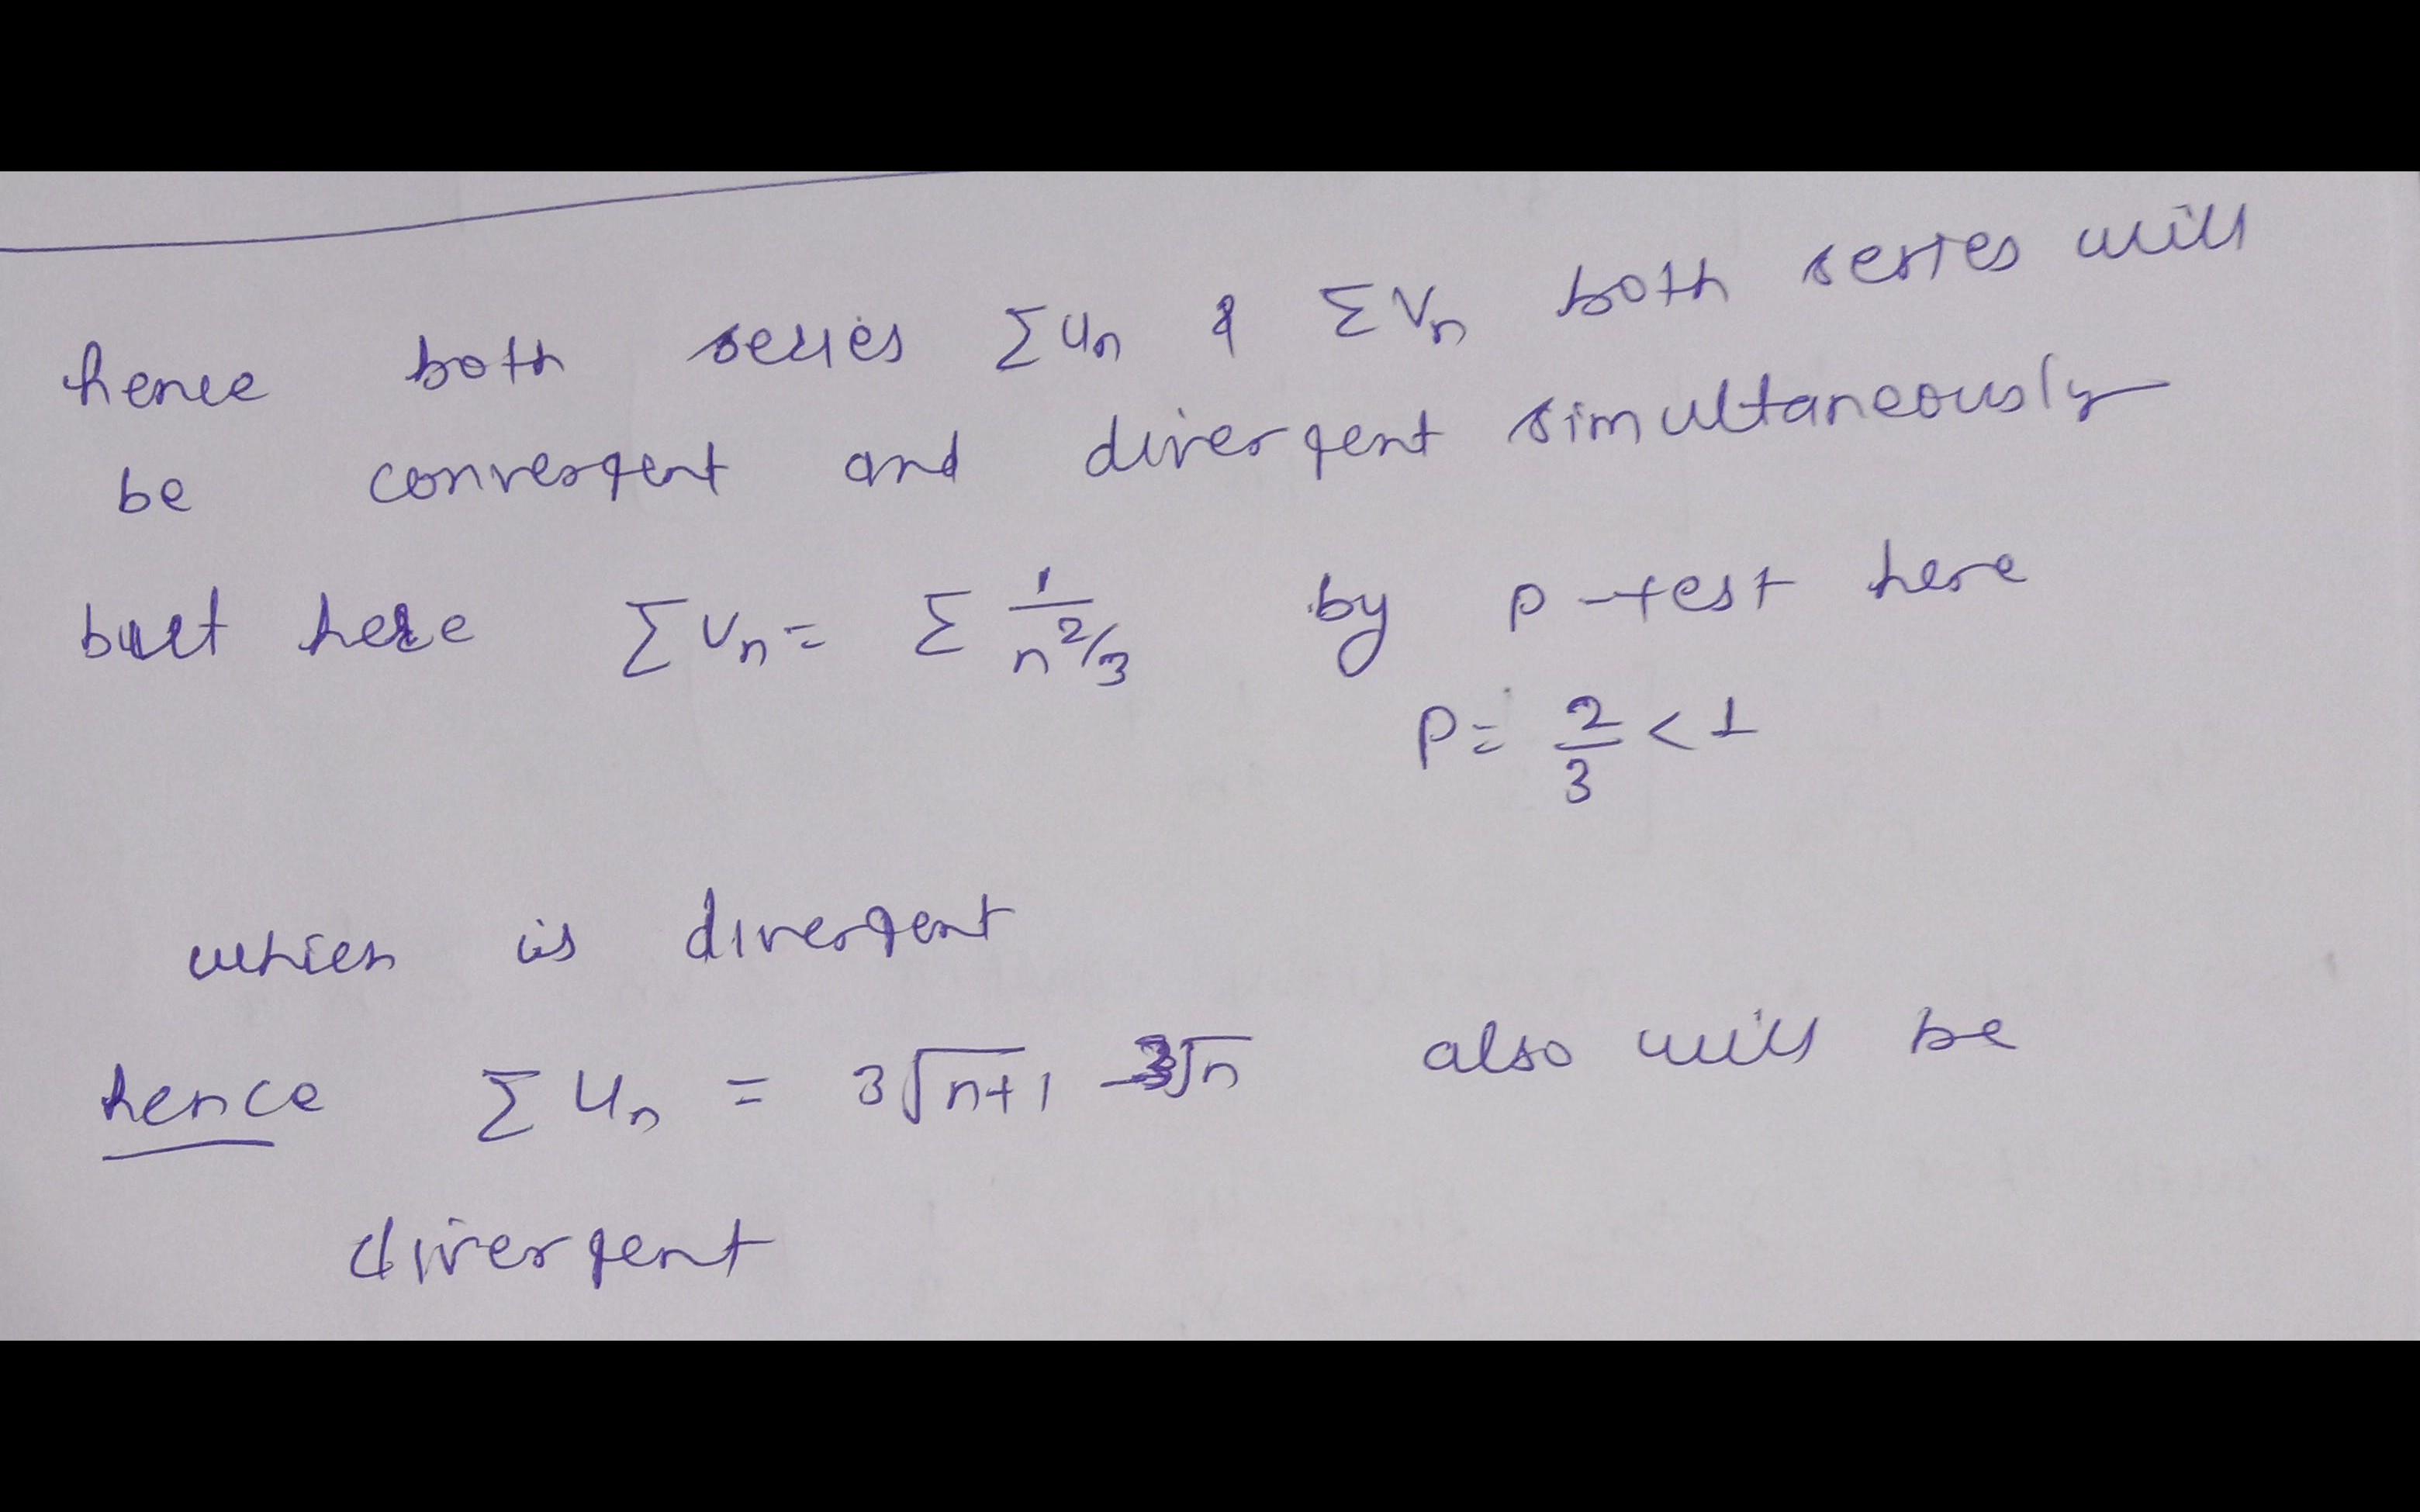 hence both series Σ un & Σ Vn both series will
be convergent and divergent simultaneously
but here Σ Vn = Σ 1/n^2/3 by p-test here
P = 2/3 < 1
which is divergent
hence Σ Un = 3√n+1 - 3√n also will be
divergent